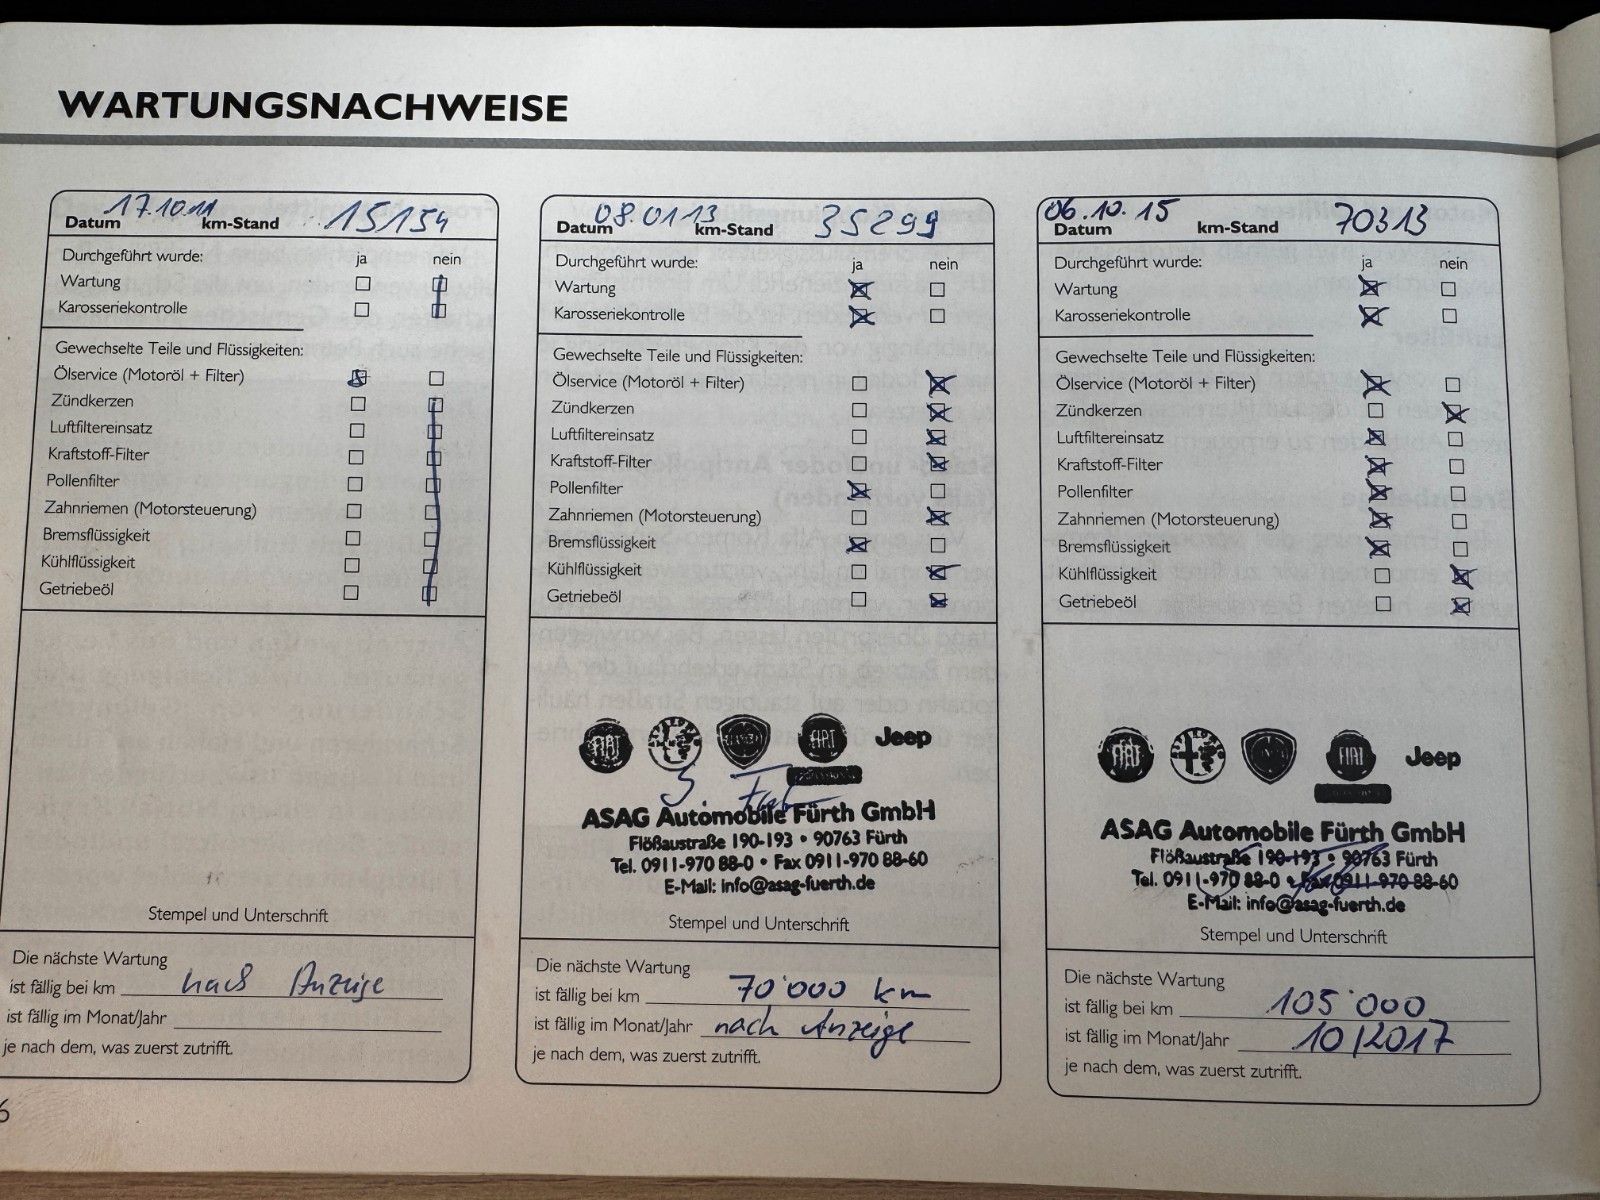 WARTUNGSNACHWEISE
Datum 17.10.11 km-Stand 15154
Durchgeführt wurde: ja nein
Wartung
Karosseriekontrolle
Gewechselte Teile und Flüssigkeiten:
Ölservice (Motoröl + Filter)
Zündkerzen
Luftfiltereinsatz
Kraftstoff-Filter
Pollenfilter
Zahnriemen (Motorsteuerung)
Bremsflüssigkeit
Kühlflüssigkeit
Getriebeöl
Stempel und Unterschrift
Die nächste Wartung
ist fällig bei km nach Anzeige
ist fällig im Monat/Jahr
je nach dem, was zuerst zutrifft.
6
Datum 08.01.13 km-Stand 35299
Durchgeführt wurde: ja nein
Wartung
Karosseriekontrolle
Gewechselte Teile und Flüssigkeiten:
Ölservice (Motoröl + Filter)
Zündkerzen
Luftfiltereinsatz
Kraftstoff-Filter
Pollenfilter
Zahnriemen (Motorsteuerung)
Bremsflüssigkeit
Kühlflüssigkeit
Getriebeöl
FIAT LANCIA FIAT Jeep
ASAG Automobile Fürth GmbH
Flößaustraße 190-193 • 90763 Fürth
Tel. 0911-970 88-0 • Fax 0911-970 88-60
E-Mail: info@asag-fuerth.de
Stempel und Unterschrift
Die nächste Wartung
ist fällig bei km 70'000 km
ist fällig im Monat/Jahr nach Anzeige
je nach dem, was zuerst zutrifft.
Datum 06.10.15 km-Stand 70313
Durchgeführt wurde: ja nein
Wartung
Karosseriekontrolle
Gewechselte Teile und Flüssigkeiten:
Ölservice (Motoröl + Filter)
Zündkerzen
Luftfiltereinsatz
Kraftstoff-Filter
Pollenfilter
Zahnriemen (Motorsteuerung)
Bremsflüssigkeit
Kühlflüssigkeit
Getriebeöl
FIAT FIAT Jeep
ASAG Automobile Fürth GmbH
Flößaustraße 190-193 • 90763 Fürth
Tel. 0911-970 88-0 • Fax 0911-970 88-60
E-Mail: info@asag-fuerth.de
Stempel und Unterschrift
Die nächste Wartung
ist fällig bei km 105'000
ist fällig im Monat/Jahr 10/2017
je nach dem, was zuerst zutrifft.